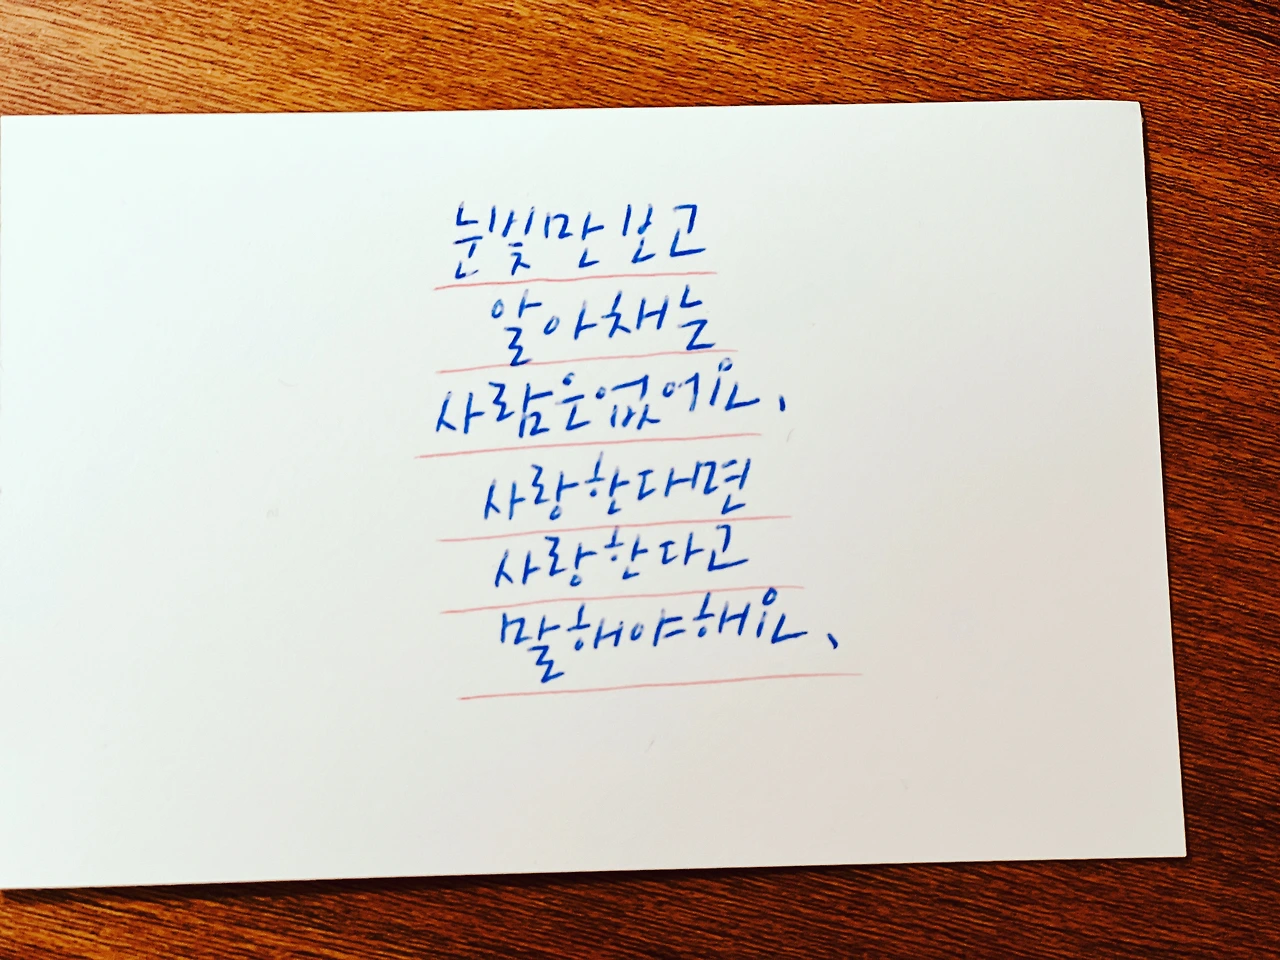 눈빛만 보고
알아채는
사람은 없어요.
사랑한다면
사랑한다고
말해야 해요.